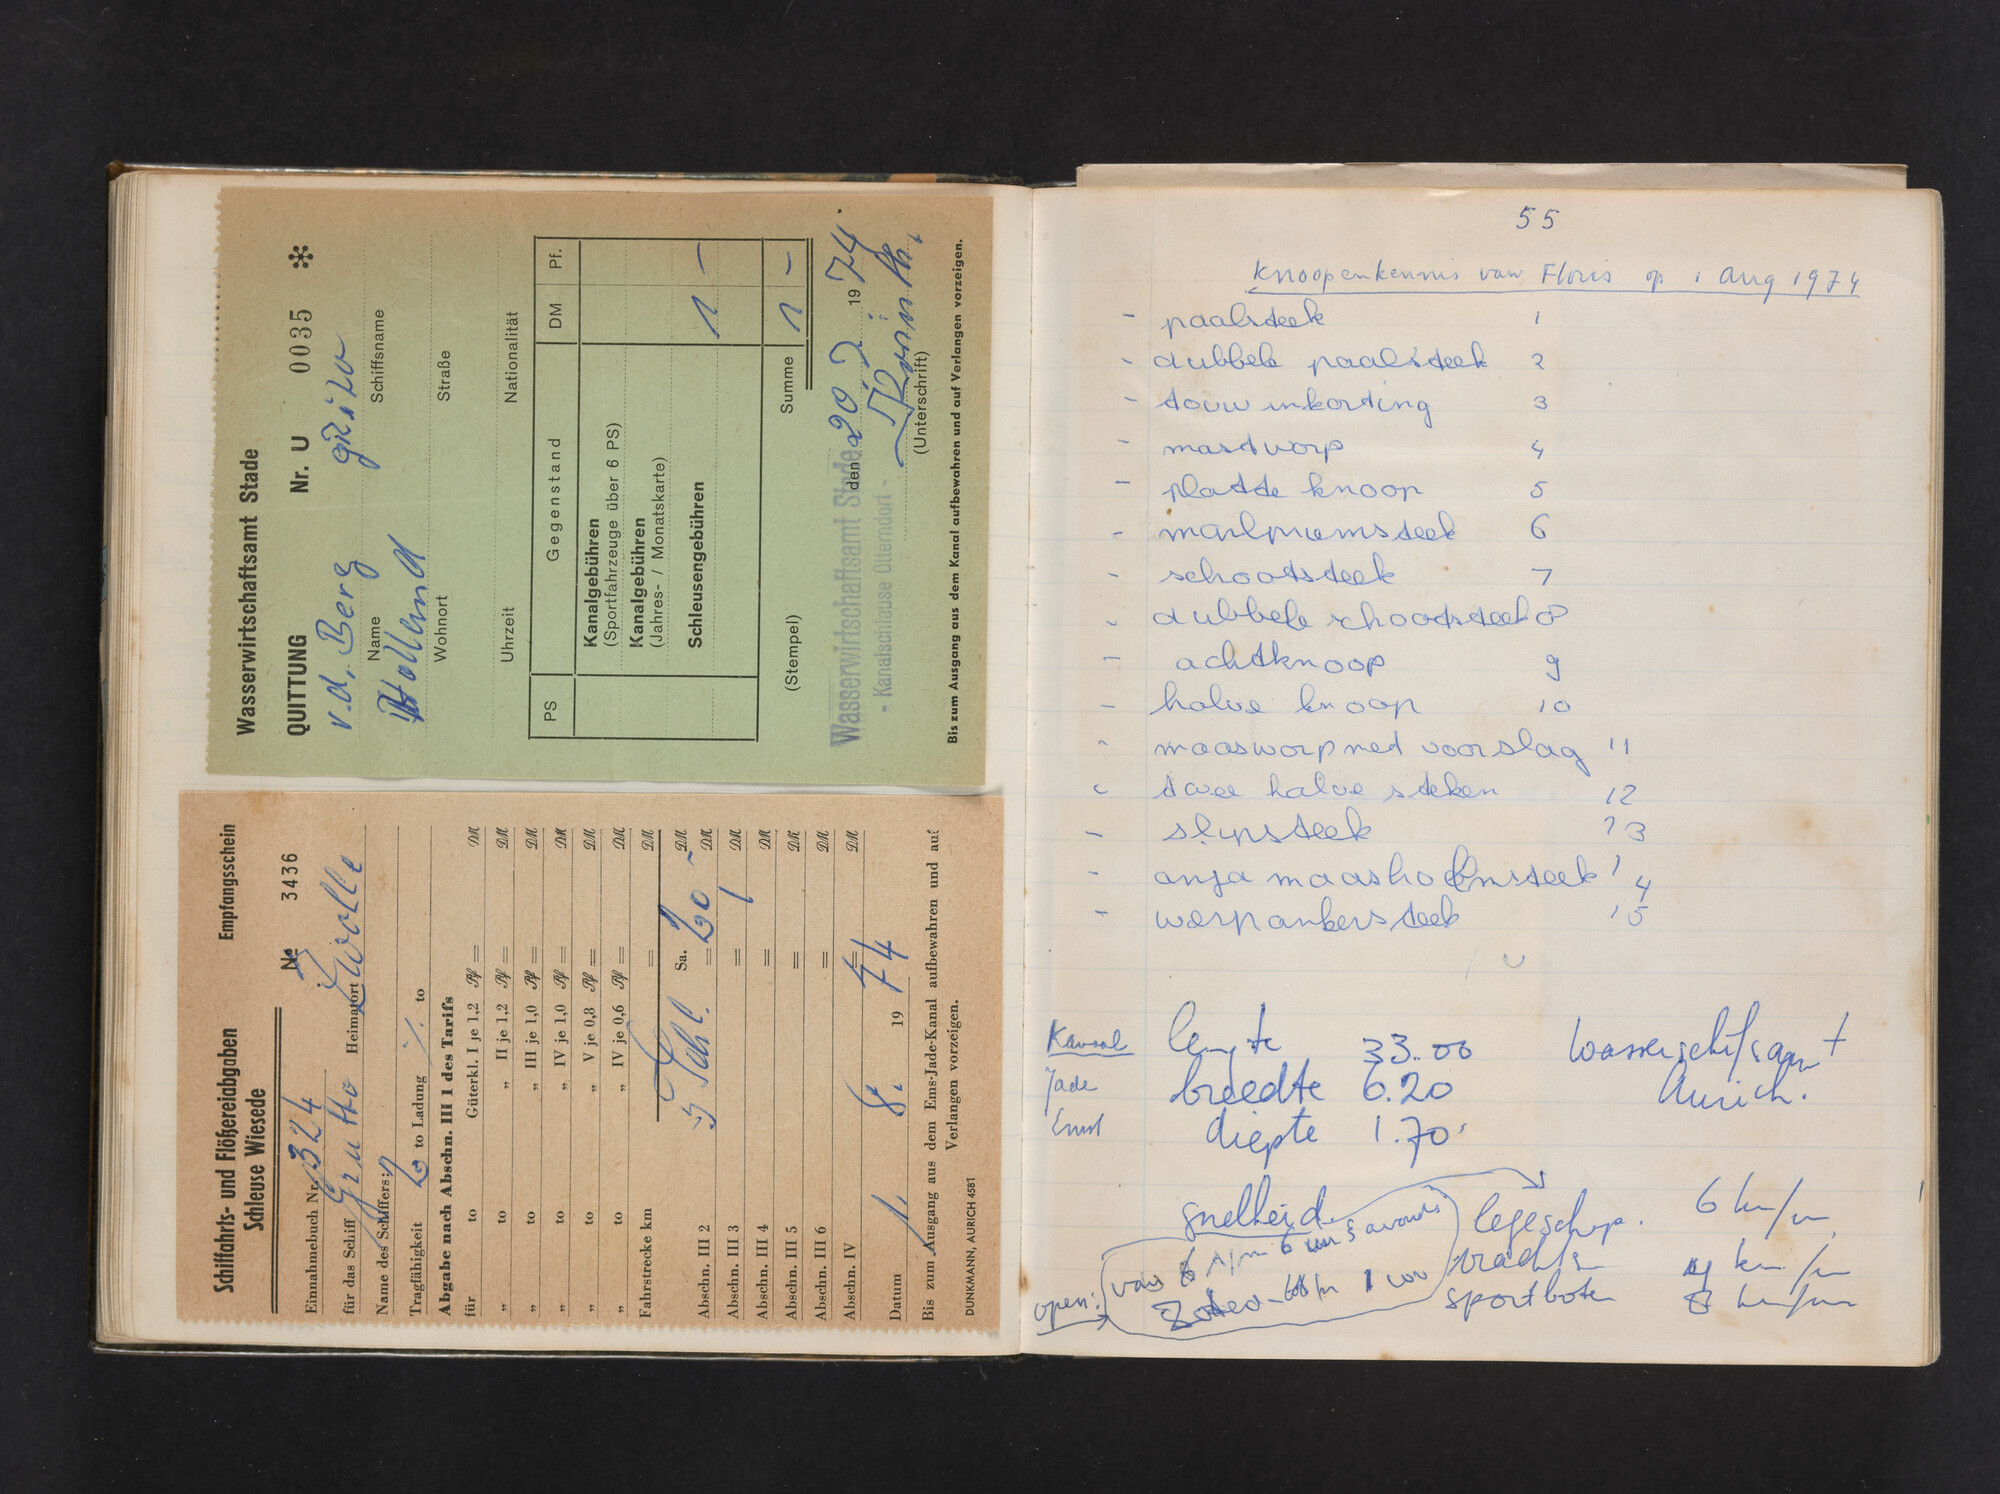 Wasserwirtschaftsamt Stade
QUITTUNG Nr. U 0035 ✻
v.d. Berg grito
Name Schiffsname
Hollend
Wohnort Straße
Uhrzeit Nationalität
PS Gegenstand DM Pf.
Kanalgebühren
(Sportfahrzeuge über 6 PS)
Kanalgebühren
(Jahres- / Monatskarte)
Schleusengebühren 1 –
(Stempel) Summe 1 –
Wasserwirtschaftsamt Stade
- Kanalschleuse Otterndorf -
den 20. 7. 1974
(Unterschrift)
Bis zum Ausgang aus dem Kanal aufbewahren und auf Verlangen vorzeigen.
Schiffahrts- und Flößereiabgaben Empfangsschein
Schleuse Wiesede
Nº 3436
Einnahmebuch Nr. 324
für das Schiff Grutto Heimatort Zwolle
Name des Schiffers:
Tragfähigkeit 2 to Ladung ./. to
Abgabe nach Abschn. III 1 des Tarifs
für to Güterkl. I je 1,2 Pf = DM
„ to „ II je 1,2 Pf = DM
„ to „ III je 1,0 Pf = DM
„ to „ IV je 1,0 Pf = DM
„ to „ V je 0,8 Pf = DM
„ to „ IV je 0,6 Pf = DM
Fahrstrecke km = DM
Sa. DM
Abschn. III 2 = DM
Abschn. III 3 = DM
Abschn. III 4 = DM
Abschn. III 5 = DM
Abschn. III 6 = DM
Abschn. IV = DM
Datum 1. 8. 1974
Bis zum Ausgang aus dem Ems-Jade-Kanal aufbewahren und auf
Verlangen vorzeigen.
DUNKMANN, AURICH 4581
55
Knoopenkennis van Floris op 1 Aug 1974
- paalsteek 1
- dubbele paalsteek 2
- touw inkorting 3
- mastworp 4
- platte knoop 5
- marlpriemsteek 6
- schootsteek 7
- dubbele schootsteek 8
- achtknoop 9
- halve knoop 10
- maasworp met voorslag 11
- twee halve steken 12
- slipsteek 13
- anja maasholmsteek 14
- werpankersteek 15
Kanaal lengte 33.00 Wasserschifsamt
Jade breedte 6.20 Aurich.
Emst diepte 1.70
snelheid legeschep. 6 km/u
vrachtsn km/u
sportboten 8 km/u
open: van 6 v/m 6 uur 's avonds